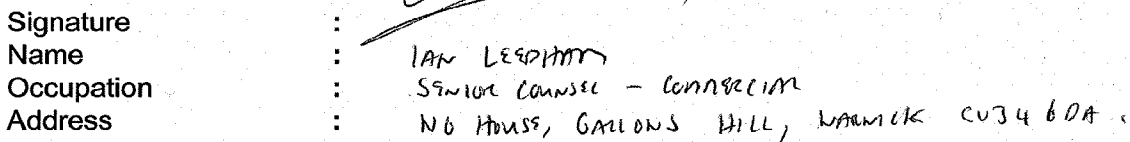 Signature :
Name : IAN LEEDHAM
Occupation : SENIOR COUNSEL – COMMERCIAL
Address : NG HOUSE, GALLOWS HILL, WARWICK CV34 6DA.